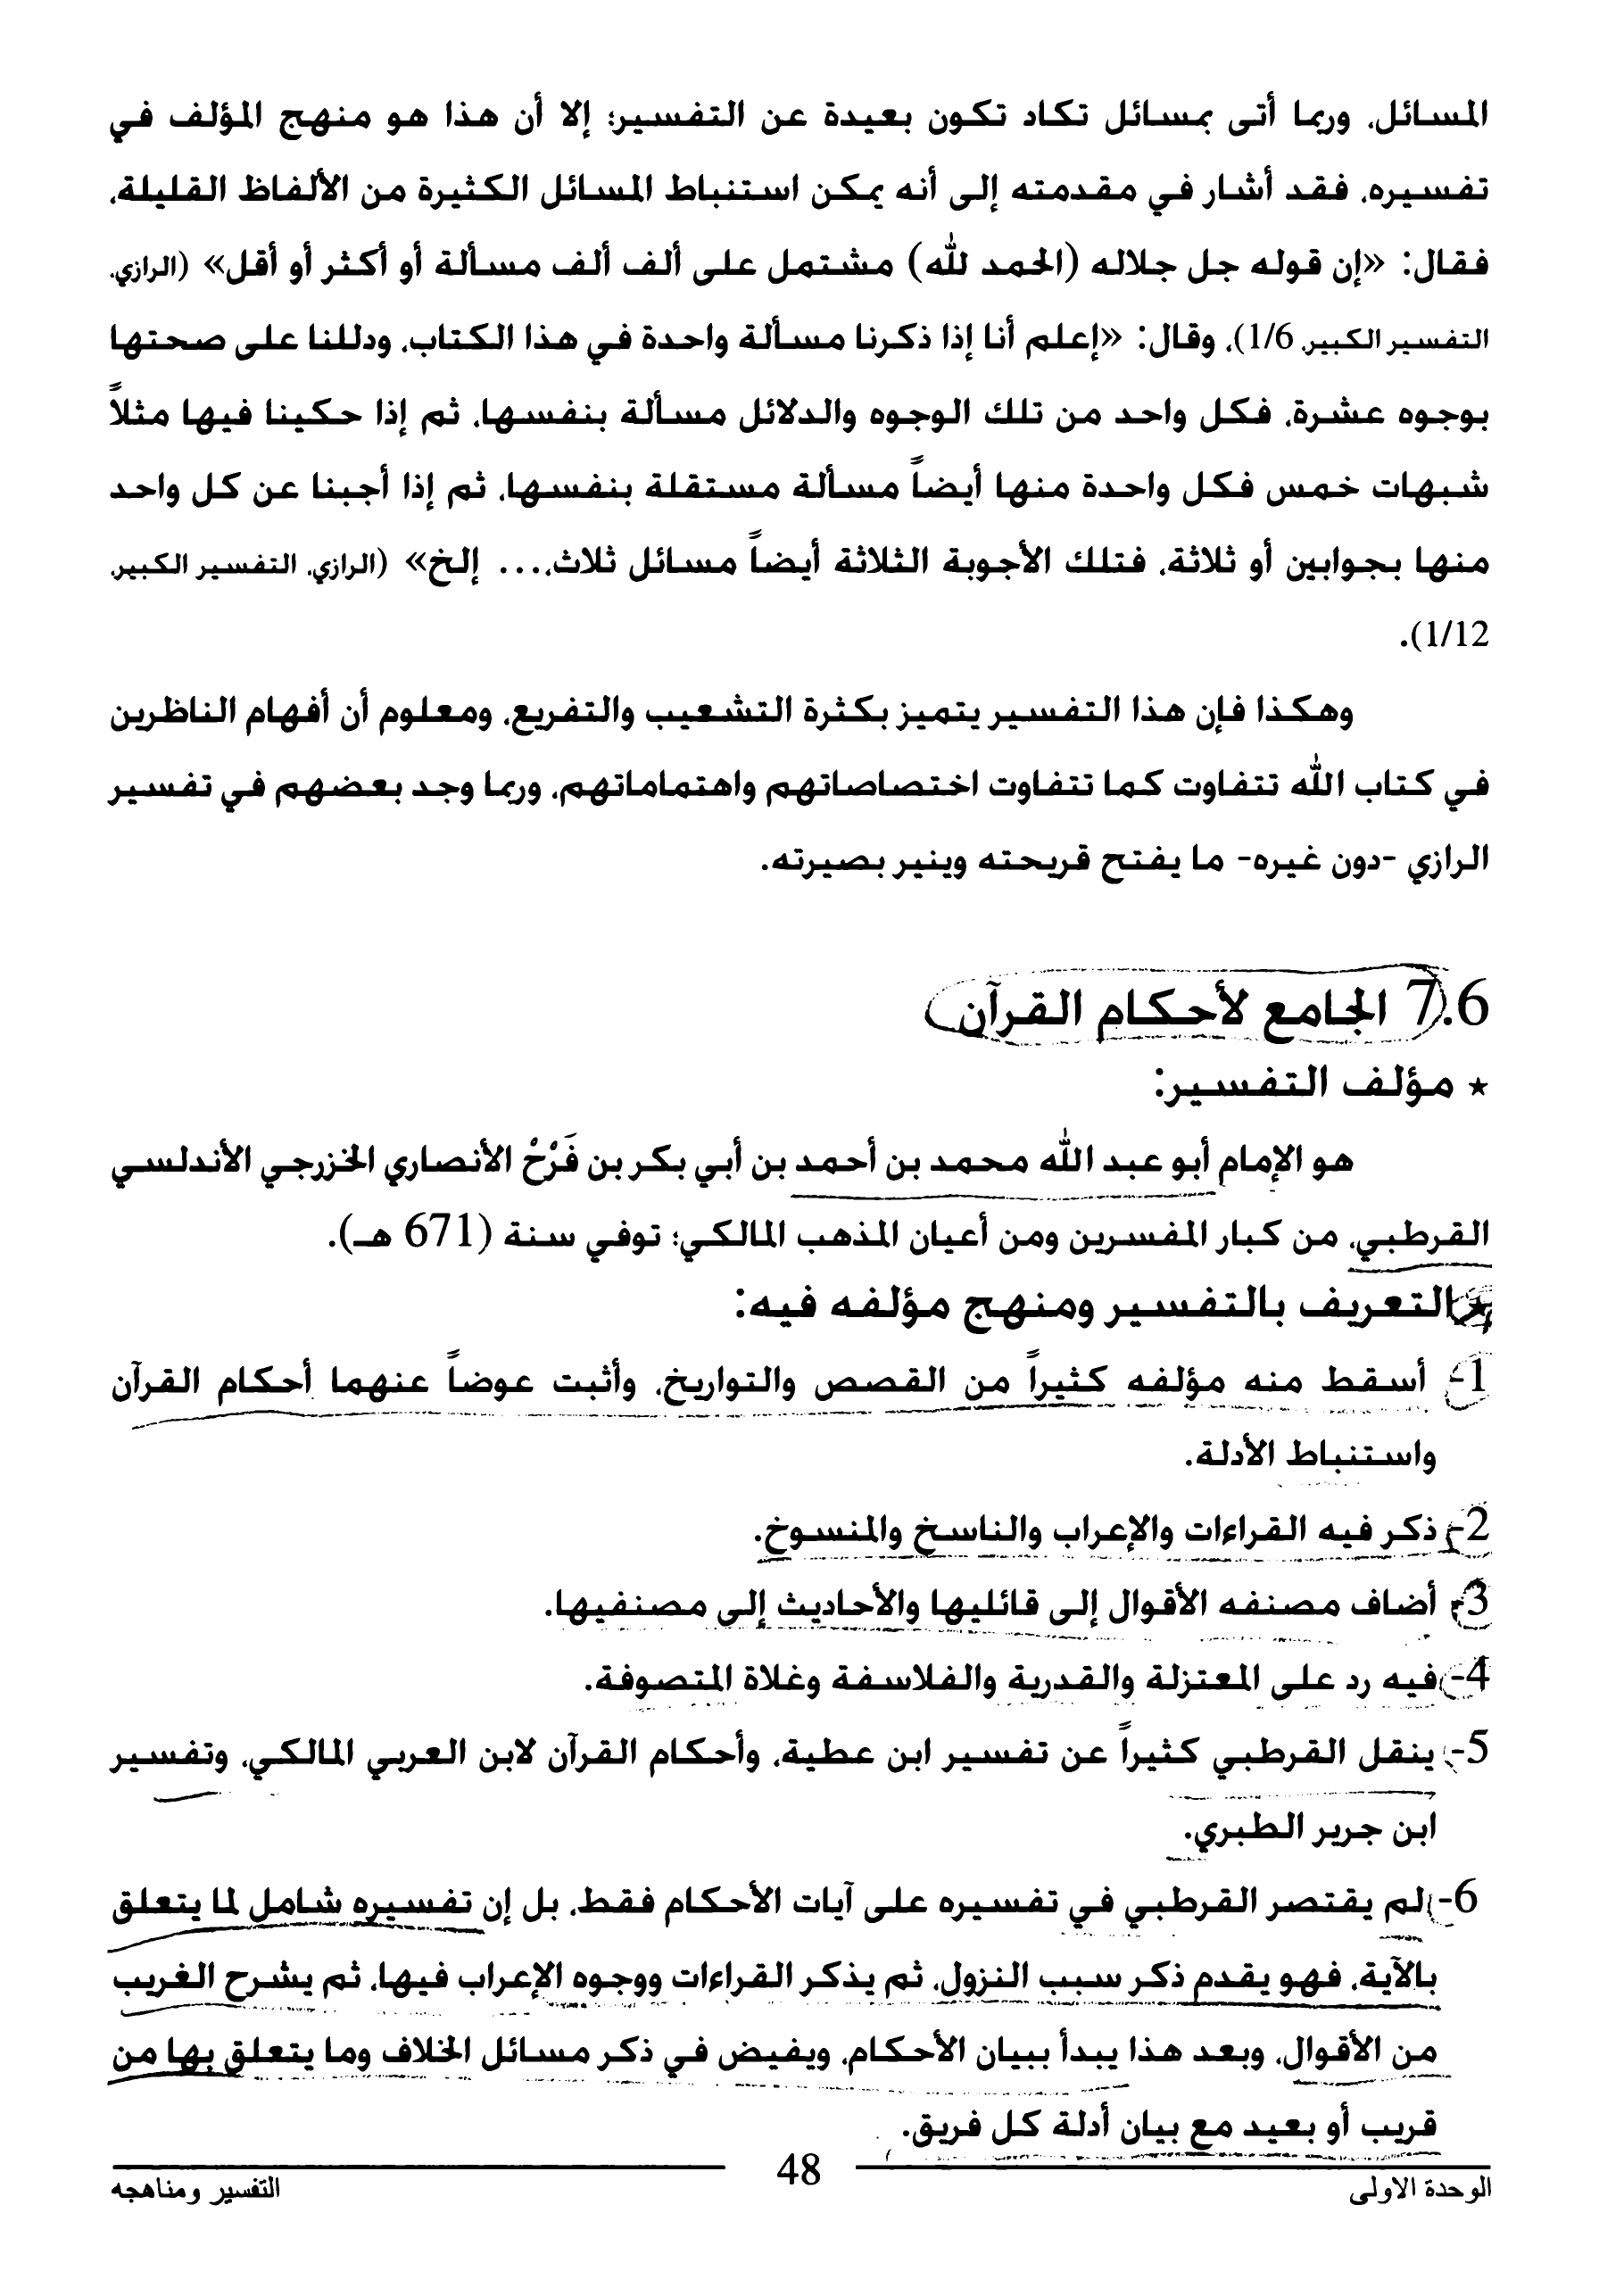 المسائل، وربما أتى بمسائل تكاد تكون بعيدة عن التفسير؛ إلا أن هذا هو منهج المؤلف في
تفسيره، فقد أشار في مقدمته إلى أنه يمكن استنباط المسائل الكثيرة من الألفاظ القليلة،
فقال: «إن قوله جل جلاله (الحمد لله) مشتمل على ألف ألف مسألة أو أكثر أو أقل» (الرازي،
التفسير الكبير، 1/6)، وقال: «إعلم أنا إذا ذكرنا مسألة واحدة في هذا الكتاب، ودللنا على صحتها
بوجوه عشرة، فكل واحد من تلك الوجوه والدلائل مسألة بنفسها، ثم إذا حكينا فيها مثلاً
شبهات خمس فكل واحدة منها أيضاً مسألة مستقلة بنفسها، ثم إذا أجبنا عن كل واحد
منها بجوابين أو ثلاثة، فتلك الأجوبة الثلاثة أيضاً مسائل ثلاث،... إلخ» (الرازي، التفسير الكبير،
1/12).
وهكذا فإن هذا التفسير يتميز بكثرة التشعيب والتفريع، ومعلوم أن أفهام الناظرين
في كتاب الله تتفاوت كما تتفاوت اختصاصاتهم واهتماماتهم، وربما وجد بعضهم في تفسير
الرازي -دون غيره- ما يفتح قريحته وينير بصيرته.
7.6 الجامع لأحكام القرآن
* مؤلف التفسير:
هو الإمام أبو عبد الله محمد بن أحمد بن أبي بكر بن فَرْحْ الأنصاري الخزرجي الأندلسي
القرطبي، من كبار المفسرين ومن أعيان المذهب المالكي؛ توفي سنة (671 هـ).
* التعريف بالتفسير ومنهج مؤلفه فيه:
1- أسقط منه مؤلفه كثيراً من القصص والتواريخ، وأثبت عوضاً عنهما أحكام القرآن
واستنباط الأدلة.
2- ذكر فيه القراءات والإعراب والناسخ والمنسوخ.
3- أضاف مصنفه الأقوال إلى قائليها والأحاديث إلى مصنفيها.
4- فيه رد على المعتزلة والقدرية والفلاسفة وغلاة المتصوفة.
5- ينقل القرطبي كثيراً عن تفسير ابن عطية، وأحكام القرآن لابن العربي المالكي، وتفسير
ابن جرير الطبري.
6- لم يقتصر القرطبي في تفسيره على آيات الأحكام فقط، بل إن تفسيره شامل لما يتعلق
بالآية، فهو يقدم ذكر سبب النزول، ثم يذكر القراءات ووجوه الإعراب فيها، ثم يشرح الغريب
من الأقوال، وبعد هذا يبدأ ببيان الأحكام، ويفيض في ذكر مسائل الخلاف وما يتعلق بها من
قريب أو بعيد مع بيان أدلة كل فريق.
الوحدة الاولى 48 التفسير ومناهجه